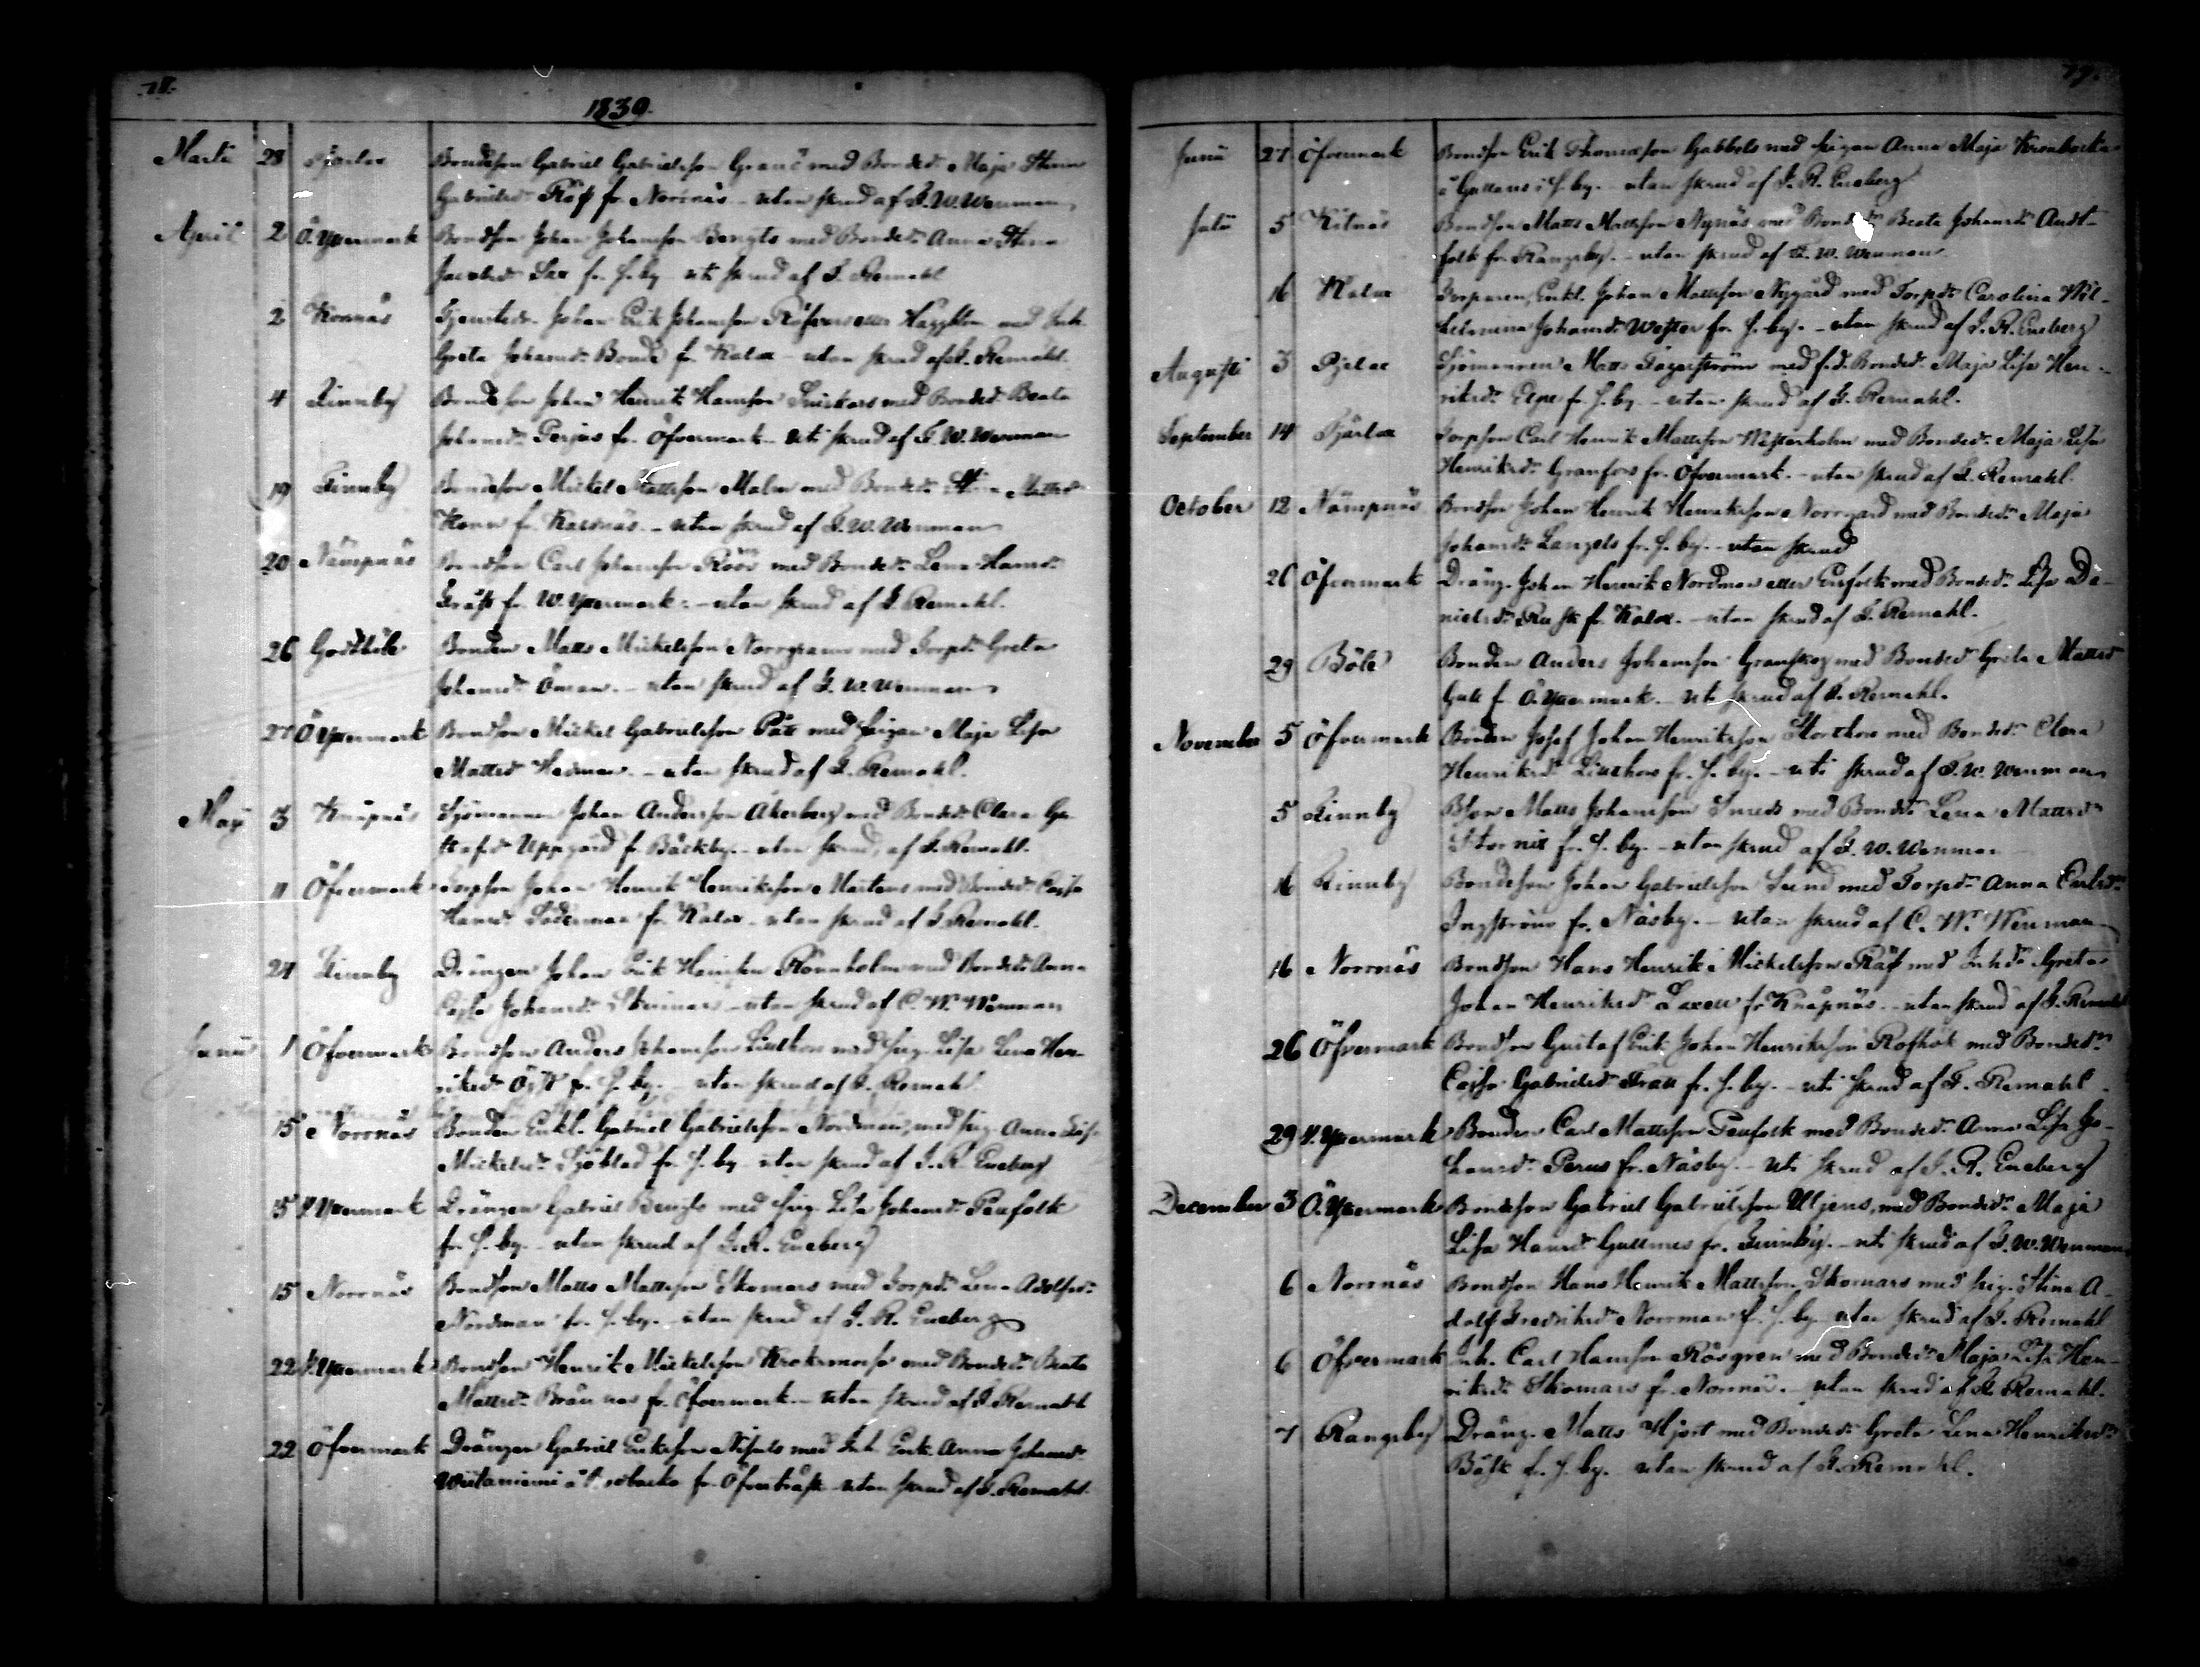 78.
1839.
Martii 28 Bondeson Gabriel Gabrielsson med Bonded. Maja Stina
Gabrielsd. Räf fr. Norrnäs - utan skrud af G. W. Wenman
April 2 Ö. Yttermark Bondson Johan Johansson Bengts med Bonded. Anna Stina
Lax fr. S. by uti skrud af G. Remahl
2 Kornäs Johan Erik Johansson eller Hägglöm med Inh.
Greta Johansd. Bonde fr. Kalax - utan skrud af G. Remahl.
4 Finnby Bondeson Johan Henrik Hansson med Bonded. Beata
Johansd. Perjus fr. Öfvermark - uti skrud af G. W. Wenman
19 Finnby Bondeson Mickel Mattsson Malm med Bonded. Stina Mattsd.
fr. - utan skrud af G. W. Wenman
20 Nämpnäs Bondson Carl Johansson Röös med Bonded. Lena Hansd.
fr. W. Yttermark. - utan skrud af G. Remahl.
26 Gottböle Bonden Matts Mickelsson Norrgrann med Torpd. Greta
Johansd. Öman. - utan skrud af G. W. Wenman
27 Ö. Yttermark Bondson Mickel Gabrielsson med Pigan Maja Lisa
Mattsd. Hedman. - utan skrud af G. Remahl.
Maji 3 Knåpnäs Sjömannen Johan Andersson Åkerberg med Bonded. Clara Gu-
stafsd. Uppgård fr. Bäckby. - utan skrud, af G. Remahl.
11 Öfvermark Torpson Johan Henrik Henriksson Mårtens med Bonded. Cajsa
Hansd. Söderman fr. Kalax - utan skrud af G. Remahl.
24 Finnby Drängen Johan Erik Rönnholm med Bonded. Anna
Cajsa Johansd. - utan skrud af C. W. Wenman
Junii 1 Öfvermark Bondson Anders Johansson Lillkors med Pig. Lisa Lena Hen-
riksd. fr. S. by. - utan skrud af G. Remahl.
15 Norrnäs Bonden Enkl. Gabriel Gabrielsson Nordman, med Pig. Anna Lisa
Mickelsd. Sjöblad fr. S. by - utan skrud af J. R. Eneberg
15 Y. Yttermark Drängen Gabriel Bengts med Pig. Lisa Johansd. Penfolk
fr. S. by. - utan skrud af J. R. Eneberg
15 Norrnäs Bondson Matts Mattsson Skomars med Torpd. Lena Adolfsd.
Nordman fr. S. by. - utan skrud af J. R. Eneberg
22 Y. Yttermark Bondson Henrik Mickelsson Krokmorso med Bonded. Beata
Mattsd. Brännas fr. Öfvermark. - utan skrud af G. Remahl
22 Öfvermark Drängen Gabriel Eriksson Nissals med Inh. Enk. Anna Johansd.
fr. Öfverträsk utan skrud af G. Remahl.
79.
Junii 27 Öfvermark Bondson Erik Thomasson Gabbels med Pigan Anna Maja
i S. by. - utan skrud af J. R. Eneberg
Julii 5 Bondson Matts Mattsson Nynäs med Bonded. Beata Johansd. Aust-
folk fr. Rangsby. - utan skrud af G. W. Wenman
16 Kalax Torparen, Enkl. Johan Mattsson Nygård med Torpd. Carolina Wil-
helmina Johansd. Wester fr. S. by. - utan skrud af J. R. Eneberg
Augusti 3 Pjelax Sjömannen Matts Fagerström med f.d. Bonded. Maja Lisa Hen-
riksd. fr. S. by. - utan skrud af G. Remahl.
September 14 Tjärlax Torpson Carl Henrik Mattsson Westerholm med Bonded. Maja Lisa
Henriksd. Granfors fr. Öfvermark. - utan skrud af G. Remahl.
October 12 Nämpnäs Bondson Johan Henrik Henriksson Norrgård med Bonded. Maja
Johansd. Langels fr. S. by. - utan skrud
26 Öfvermark Dräng. Johan Henrik Nordman eller Enfolk med Bonded. Lisa Da-
nielsd. Rusk fr. Kalax. - utan skrud af G. Remahl.
29 Böle Bonden Anders Johansson Granskog med Bonded. Greta Mattsd.
Gull f. Ö. Yttermark. - uti skrud af G. Remahl.
November 5 Öfvermark Bonden Josef Johan Henriksson Storkors med Bonded. Clara
Henriksd. Lillkors fr. S. by. - uti skrud af G. W. Wenman
5 Finnby Bson Matts Johansson Snreds med Bonded. Lena Mattsd.
Stornix fr. S. by. - utan skrud af G. W. Wenman
16 Finnby Bondeson Johan Gabrielsson Lund med Torpd. Anna Carlsd.
Ingström fr. Näsby. - utan skrud af C. W. Wenman
16 Norrnäs Bondson Hans Henrik Mickelsson Räf med Inhd. Greta
Johan Henriksd. Laxell fr. Knåpnäs. - utan skrud af G. Remahl
26 Öfvermark Bondson Gustaf Erik Johan Henriksson Rofhök med Bonded.
Cajsa Gabrielsd. Trall fr. S. by. - uti skrud af G. Remahl.
29 Y. Yttermark Bonden Carl Mattsson Penfolk med Bonded. Anna Lisa Jo-
hansd. Perus fr. Näsby. - uti skrud af J. R. Eneberg
December 3 Ö. Yttermark Bondeson Gabriel Gabrielsson Uljens, med Bonded. Maja
Lisa Hansd. Gullmes fr. Finnby. - uti skrud af G. W. Wenman
6 Norrnäs Bondson Hans Henrik Mattsson Skomars med Pig. Stina A-
dolf Fredriksd. Norrman f. S. by - utan skrud af G. Remahl
6 Öfvermark Inh. Carl Hansson Rosgren med Bonded. Maja Lisa Hen-
riksd. Skomars fr. Norrnäs. - utan skrud af G. Remahl.
7 Rangsby Dräng. Matts Hjort med Bonded. Greta Lena Henriksd.
Bäsk fr. S. by. utan skrud af G. Remahl.